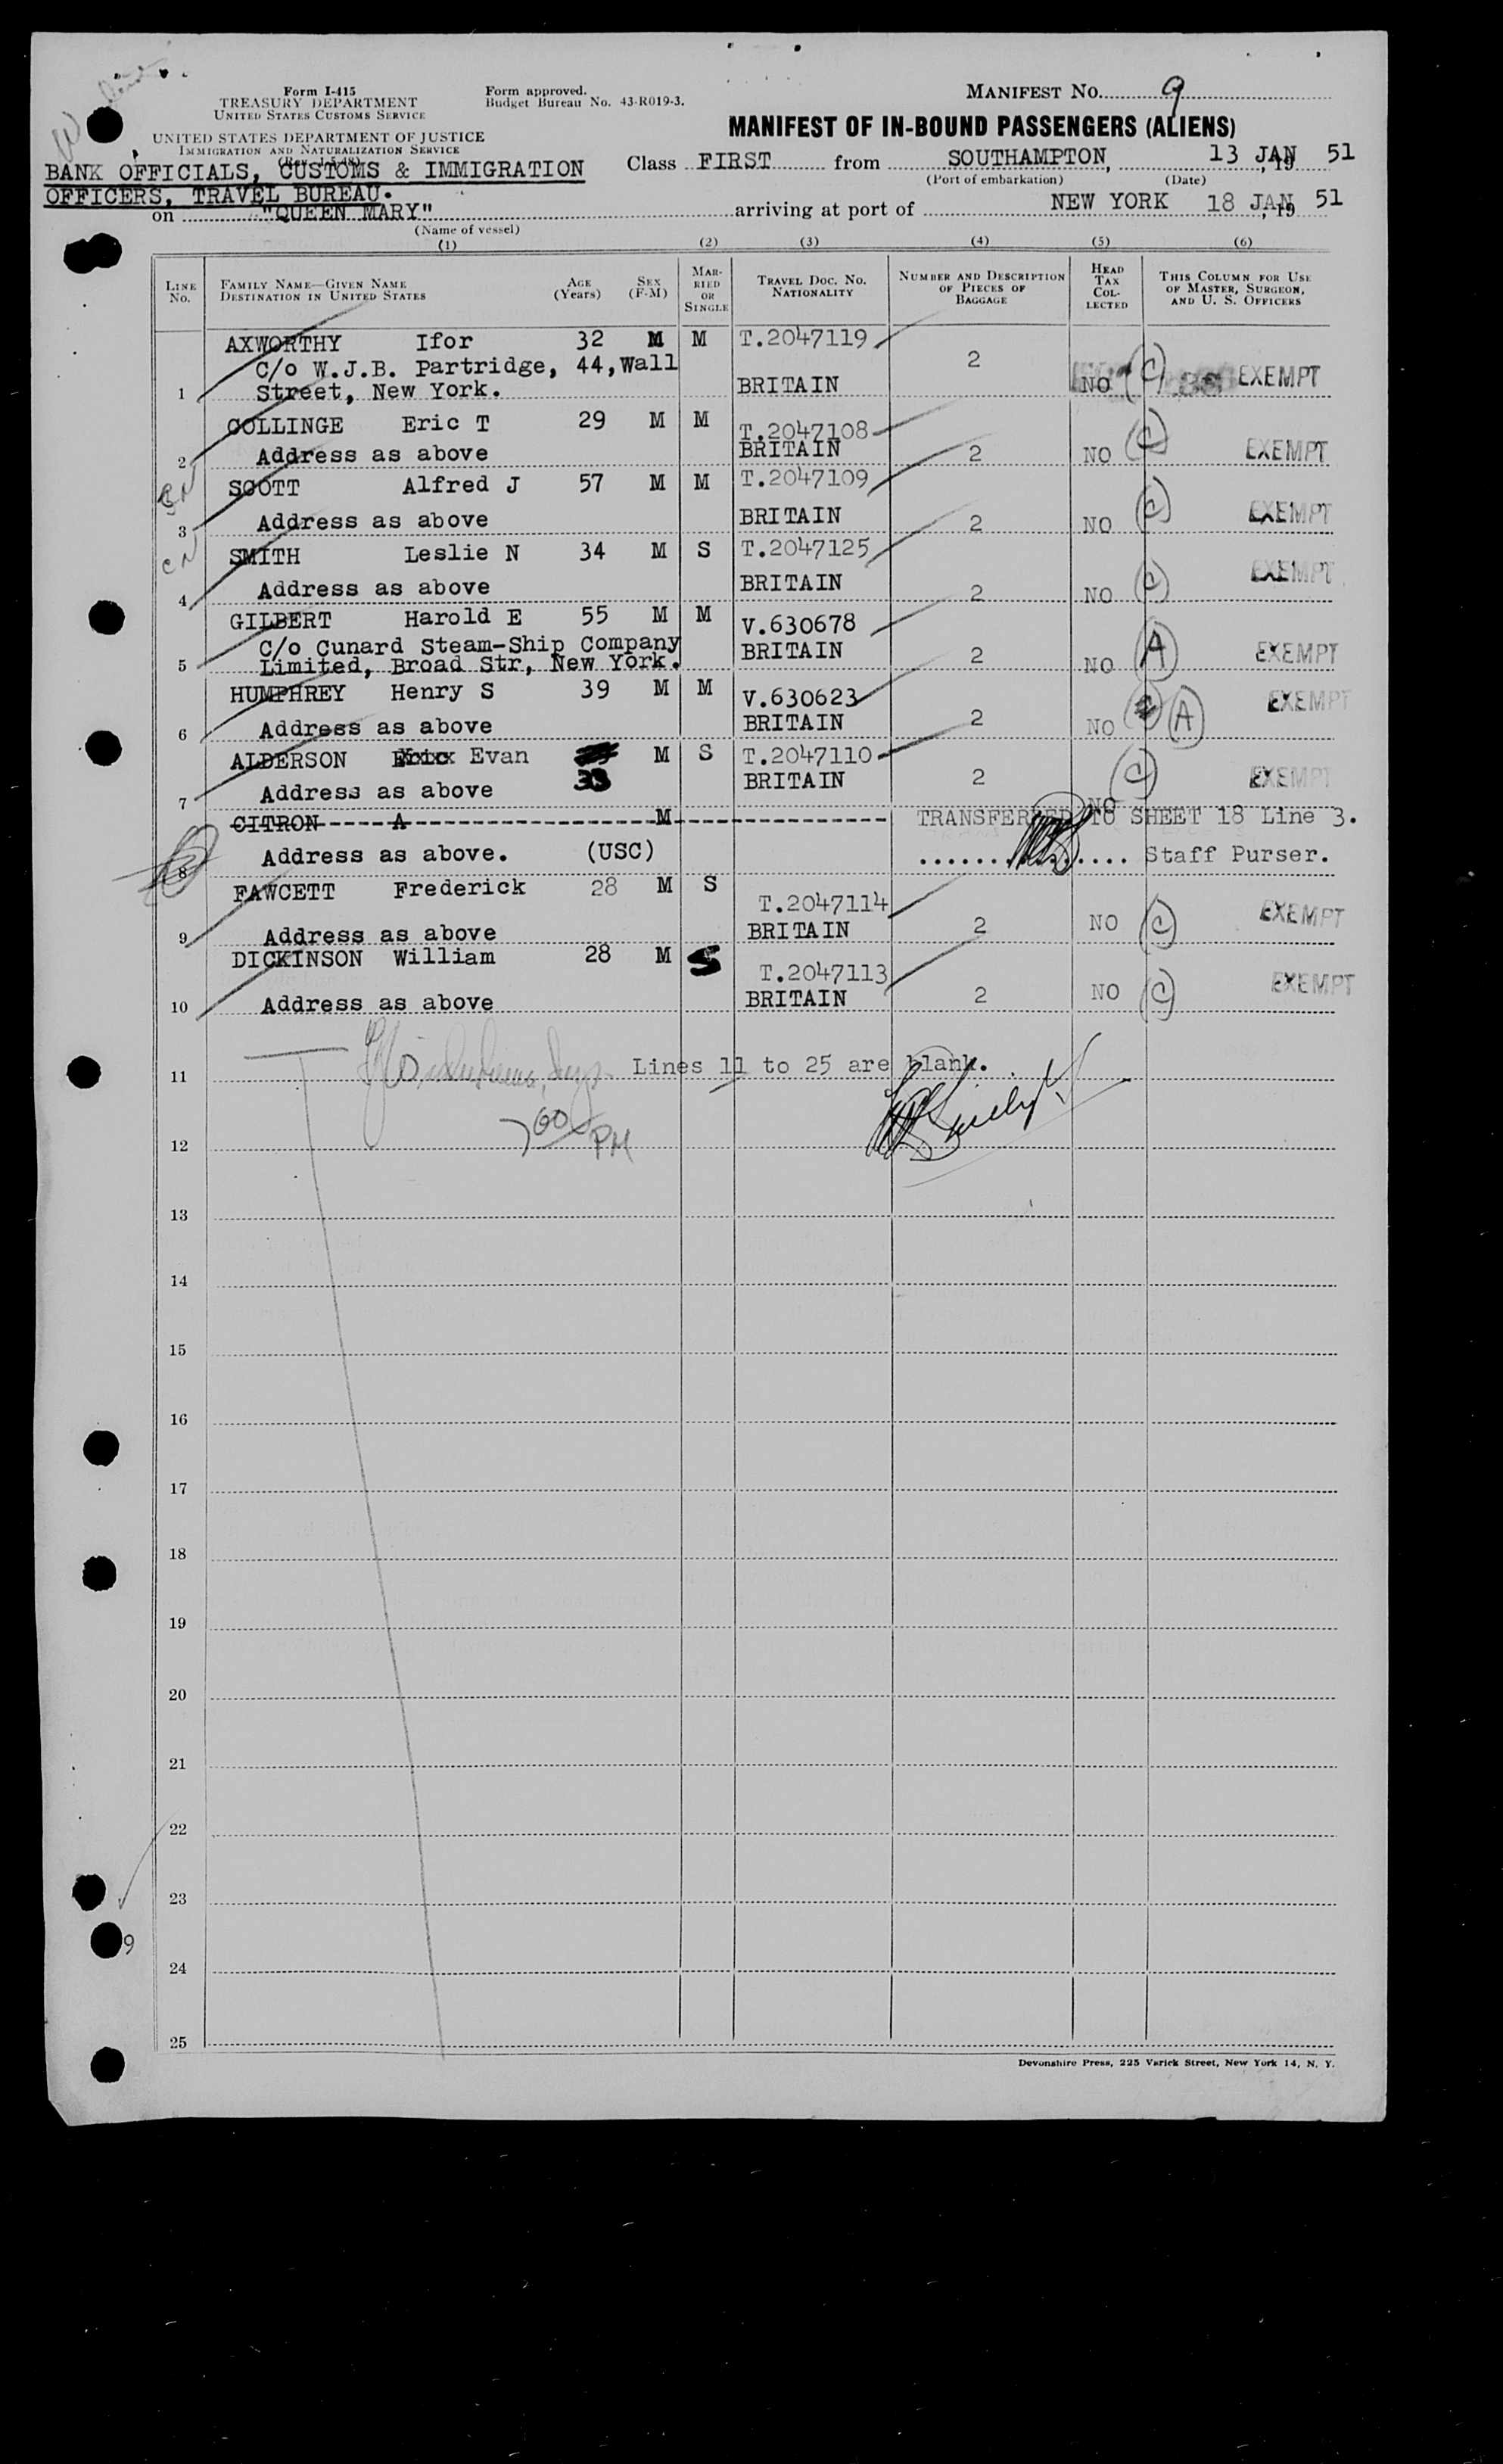 Form I-415
TREASURY DEPARTMENT
UNITED STATES CUSTOMS SERVICE
Form approved.
Budget Bureau No. 43-R019-3.
MANIFEST NO. 9
UNITED STATES DEPARTMENT OF JUSTICE
IMMIGRATION AND NATURALIZATION SERVICE
MANIFEST OF IN-BOUND PASSENGERS (ALIENS)
BANK OFFICIALS, CUSTOMS & IMMIGRATION
OFFICERS, TRAVEL BUREAU.
Class FIRST from SOUTHAMPTON, 13 JAN, 19 51
(Port of embarkation) (Date)
on "QUEEN MARY" arriving at port of NEW YORK 18 JAN, 19 51
(Name of vessel)
(1) (2) (3) (4) (5) (6)
LINE No. FAMILY NAME—GIVEN NAME DESTINATION IN UNITED STATES AGE (Years) SEX (F-M) MARRIED OR SINGLE TRAVEL DOC. NO. NATIONALITY NUMBER AND DESCRIPTION OF PIECES OF BAGGAGE HEAD TAX COLLECTED THIS COLUMN FOR USE OF MASTER, SURGEON, AND U. S. OFFICERS
AXWORTHY Ifor 32 M M T.2047119
C/o W.J.B. Partridge, 44, Wall 2
1 Street, New York. BRITAIN NO (C) EXEMPT
COLLINGE Eric T 29 M M T.2047108
2 Address as above BRITAIN 2 NO (C) EXEMPT
SCOTT Alfred J 57 M M T.2047109
3 Address as above BRITAIN 2 NO (C) EXEMPT
SMITH Leslie N 34 M S T.2047125
4 Address as above BRITAIN 2 NO (C) EXEMPT
GILBERT Harold E 55 M M V.630678
C/o Cunard Steam-Ship Company BRITAIN
5 Limited, Broad Str, New York. 2 NO (A) EXEMPT
HUMPHREY Henry S 39 M M V.630623
6 Address as above BRITAIN 2 NO (A) EXEMPT
ALDERSON Evan 33 M S T.2047110
7 Address as above BRITAIN 2 NO (C) EXEMPT
CITRON A M TRANSFERRED TO SHEET 18 Line 3.
8 Address as above. (USC) Staff Purser.
FAWCETT Frederick 28 M S T.2047114
9 Address as above BRITAIN 2 NO (C) EXEMPT
DICKINSON William 28 M S T.2047113
10 Address as above BRITAIN 2 NO (C) EXEMPT
11 Lines 11 to 25 are blank.
7 00 PM
12
13
14
15
16
17
18
19
20
21
22
23
9
24
25
Devonshire Press, 225 Varick Street, New York 14, N. Y.